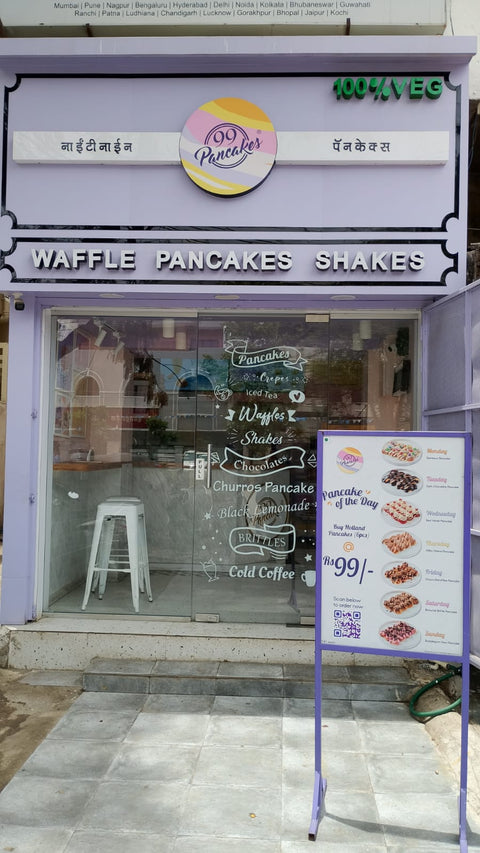 Mumbai | Pune | Nagpur | Bengaluru | Hyderabad | Delhi | Noida | Kolkata | Bhubaneswar | Guwahati
Ranchi | Patna | Ludhiana | Chandigarh | Lucknow | Gorakhpur | Bhopal | Jaipur | Kochi
100%VEG
नाईंटीनाईन
99
Pancakes
पॅनकेक्स
WAFFLE PANCAKES SHAKES
Pancakes
Crepes
Iced Tea
Waffles
Shakes
Chocolates
Churros Pancake
Black Lemonade
BRITTLES
Cold Coffee
PULL
Pancake
of the Day
Buy Holland
Pancakes (6pcs)
@
Rs 99/-
Scan below
to order now
Monday
Tuesday
Wednesday
Thursday
Friday
Saturday
Sunday